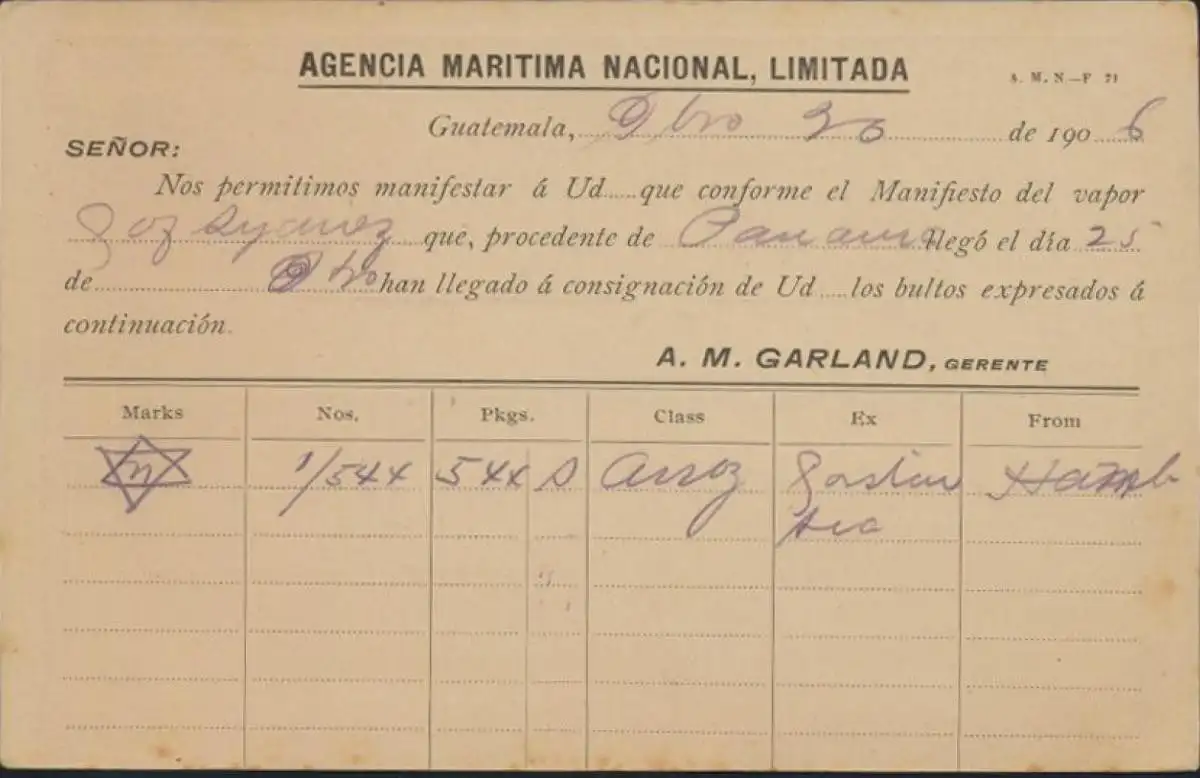 AGENCIA MARITIMA NACIONAL, LIMITADA
A. M. N.—F 71
Guatemala, 9bro 30 de 1906
SEÑOR:
Nos permitimos manifestar á Ud......que conforme el Manifiesto del vapor
que, procedente de Panama llegó el día 25
de 9bro han llegado á consignación de Ud.....los bultos expresados á
continuación.
A. M. GARLAND, GERENTE
Marks Nos. Pkgs. Class Ex From
n 1/544 544 S Arroz Hamb